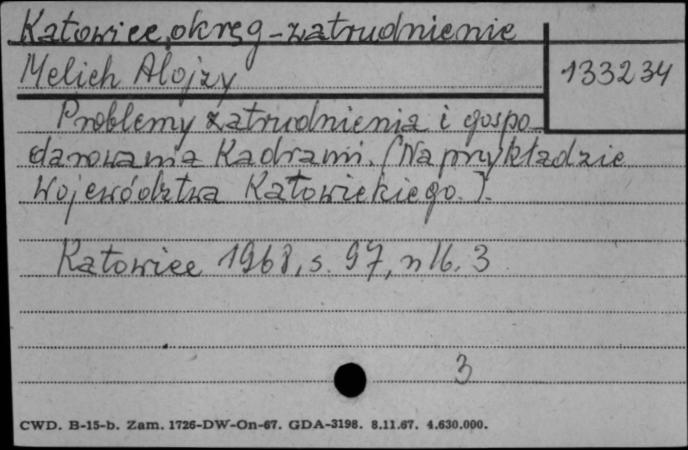 Katowice, okręg - zatrudnienie
Melich Alojzy
133234
Problemy zatrudnienia i gospo-
darowania Kadrami. [Na przykładzie
Województwa Katowickiego.].
Katowice 1968, s. 97, nlb. 3
3
CWD. B-15-b. Zam. 1726-DW-On-67. GDA-3198. 8.11.67. 4.630.000.